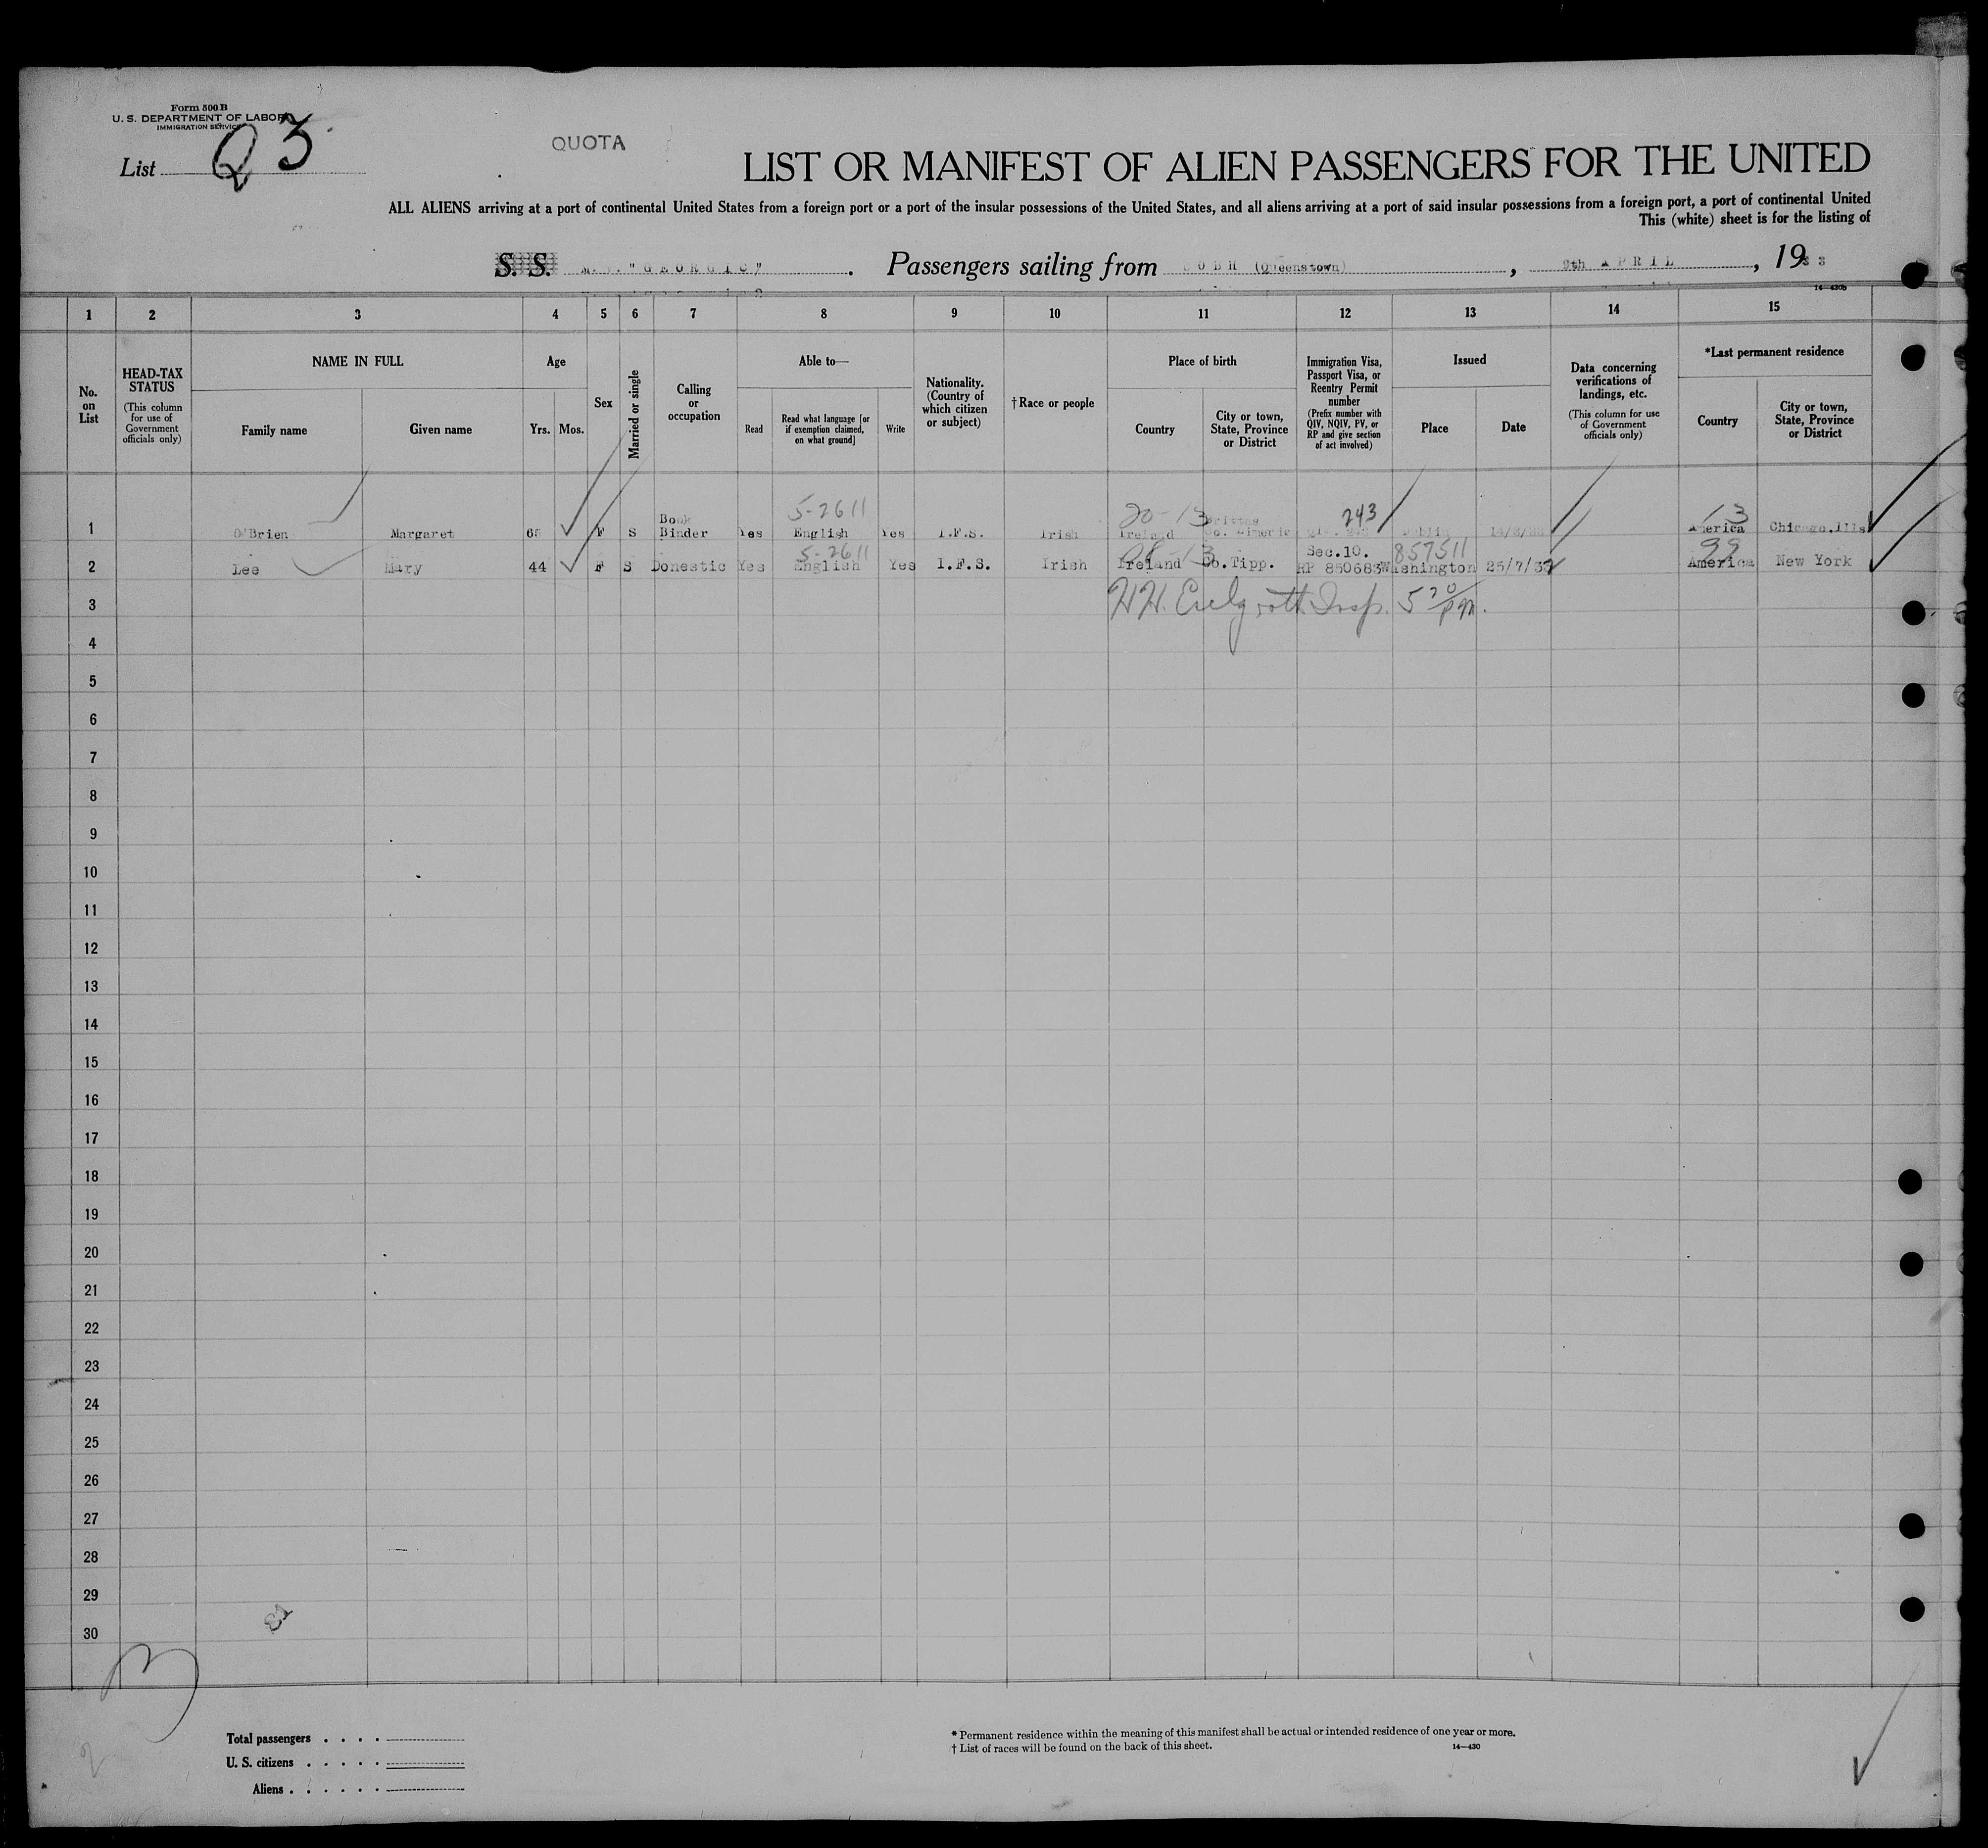 Form 500 B
U. S. DEPARTMENT OF LABOR
IMMIGRATION SERVICE
List Q 3
QUOTA
LIST OR MANIFEST OF ALIEN PASSENGERS FOR THE UNITED
ALL ALIENS arriving at a port of continental United States from a foreign port or a port of the insular possessions of the United States, and all aliens arriving at a port of said insular possessions from a foreign port, a port of continental United
This (white) sheet is for the listing of
S. S. M.V. "GEORGIC" . Passengers sailing from COBH (Queenstown) , APRIL , 1933
1 2 3 4 5 6 7 8 9 10 11 12 13 14 15
No. on List
HEAD-TAX STATUS
(This column for use of Government officials only)
NAME IN FULL
Family name
Given name
Age
Yrs. Mos.
Sex
Married or single
Calling or occupation
Able to—
Read
Read what language [or if exemption claimed, on what ground]
Write
Nationality. (Country of which citizen or subject)
† Race or people
Place of birth
Country
City or town, State, Province or District
Immigration Visa, Passport Visa, or Reentry Permit number
(Prefix number with QIV, NQIV, PV, or RP and give section of act involved)
Issued
Place
Date
Data concerning verifications of landings, etc.
(This column for use of Government officials only)
*Last permanent residence
Country
City or town, State, Province or District
5-2611 20-13 243 13
1 O'Brien Margaret F S Book Binder Yes English Yes I.F.S. Irish Ireland Co. Limeric Dublin America Chicago,Ills
5-2611 Sec.10. 857511 99
2 Lee Mary 44 F S Domestic Yes English Yes I.F.S. Irish Ireland Co.Tipp. RP 850683 Washington 25/7/32 America New York
3 Insp. 5 20 pm.
4
5
6
7
8
9
10
11
12
13
14
15
16
17
18
19
20
21
22
23
24
25
26
27
28
29
30
Total passengers . . . .
U. S. citizens . . . . .
Aliens . . . . . .
* Permanent residence within the meaning of this manifest shall be actual or intended residence of one year or more.
† List of races will be found on the back of this sheet.
14—430